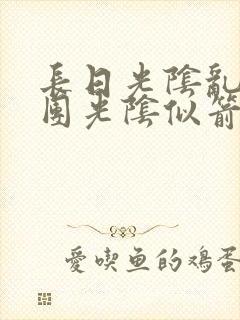 長日光陰亂
團光陰似箭
愛喫鱼的鸡蛋